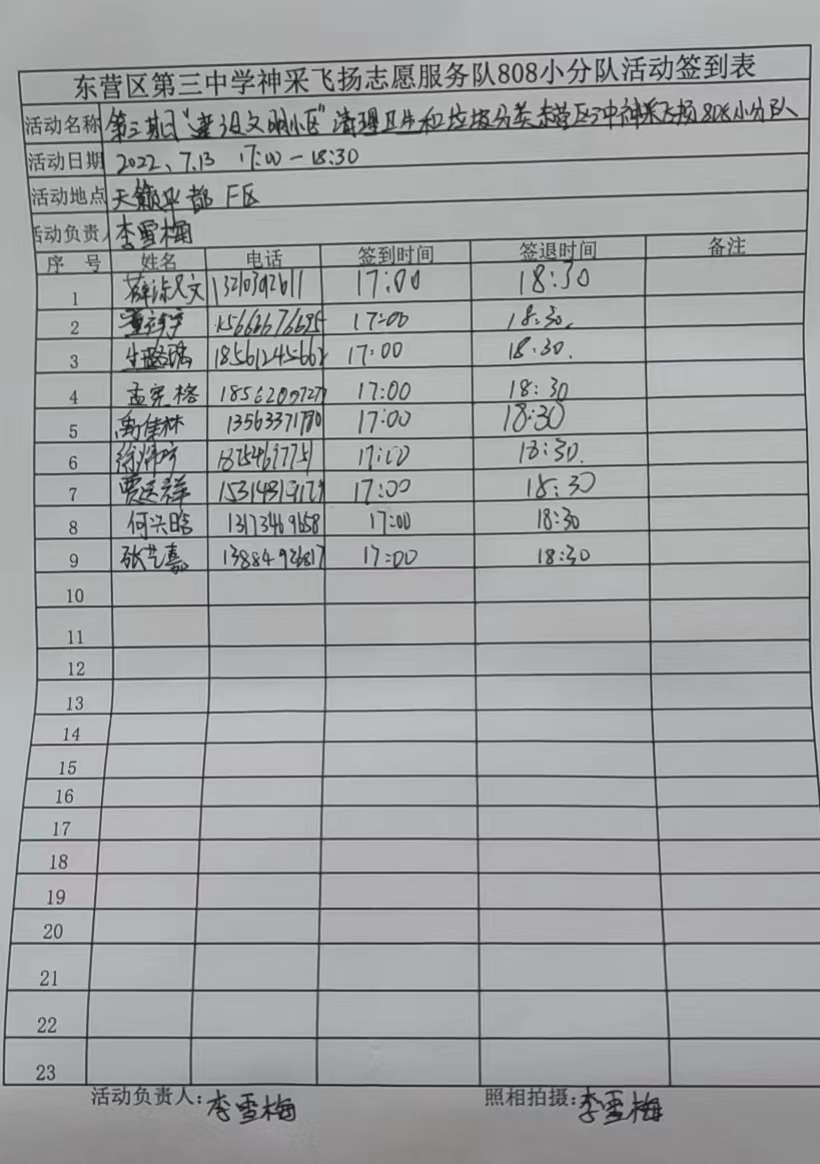 东营区第三中学神采飞扬志愿服务队808小分队活动签到表
活动名称 第三期"建设文明小区"清理卫生和垃圾分类东营区三中神采飞扬808小分队
活动日期 2022、7.13 17:00-18:30
活动地点 天籁华都 F区
活动负责人 李雪梅
序 号 姓名 电话 签到时间 签退时间 备注
1 17:00 18:30
2 17:00 18:30.
3 17:00 18:30.
4 孟宪格 17:00 18:30
5 禹佳林 17:00 18:30
6 17:00 18:30.
7 17:00 18:30
8 何兴晗 17:00 18:30
9 张艺嘉 17:00 18:30
10
11
12
13
14
15
16
17
18
19
20
21
22
23
活动负责人: 李雪梅 照相拍摄: 李雪梅